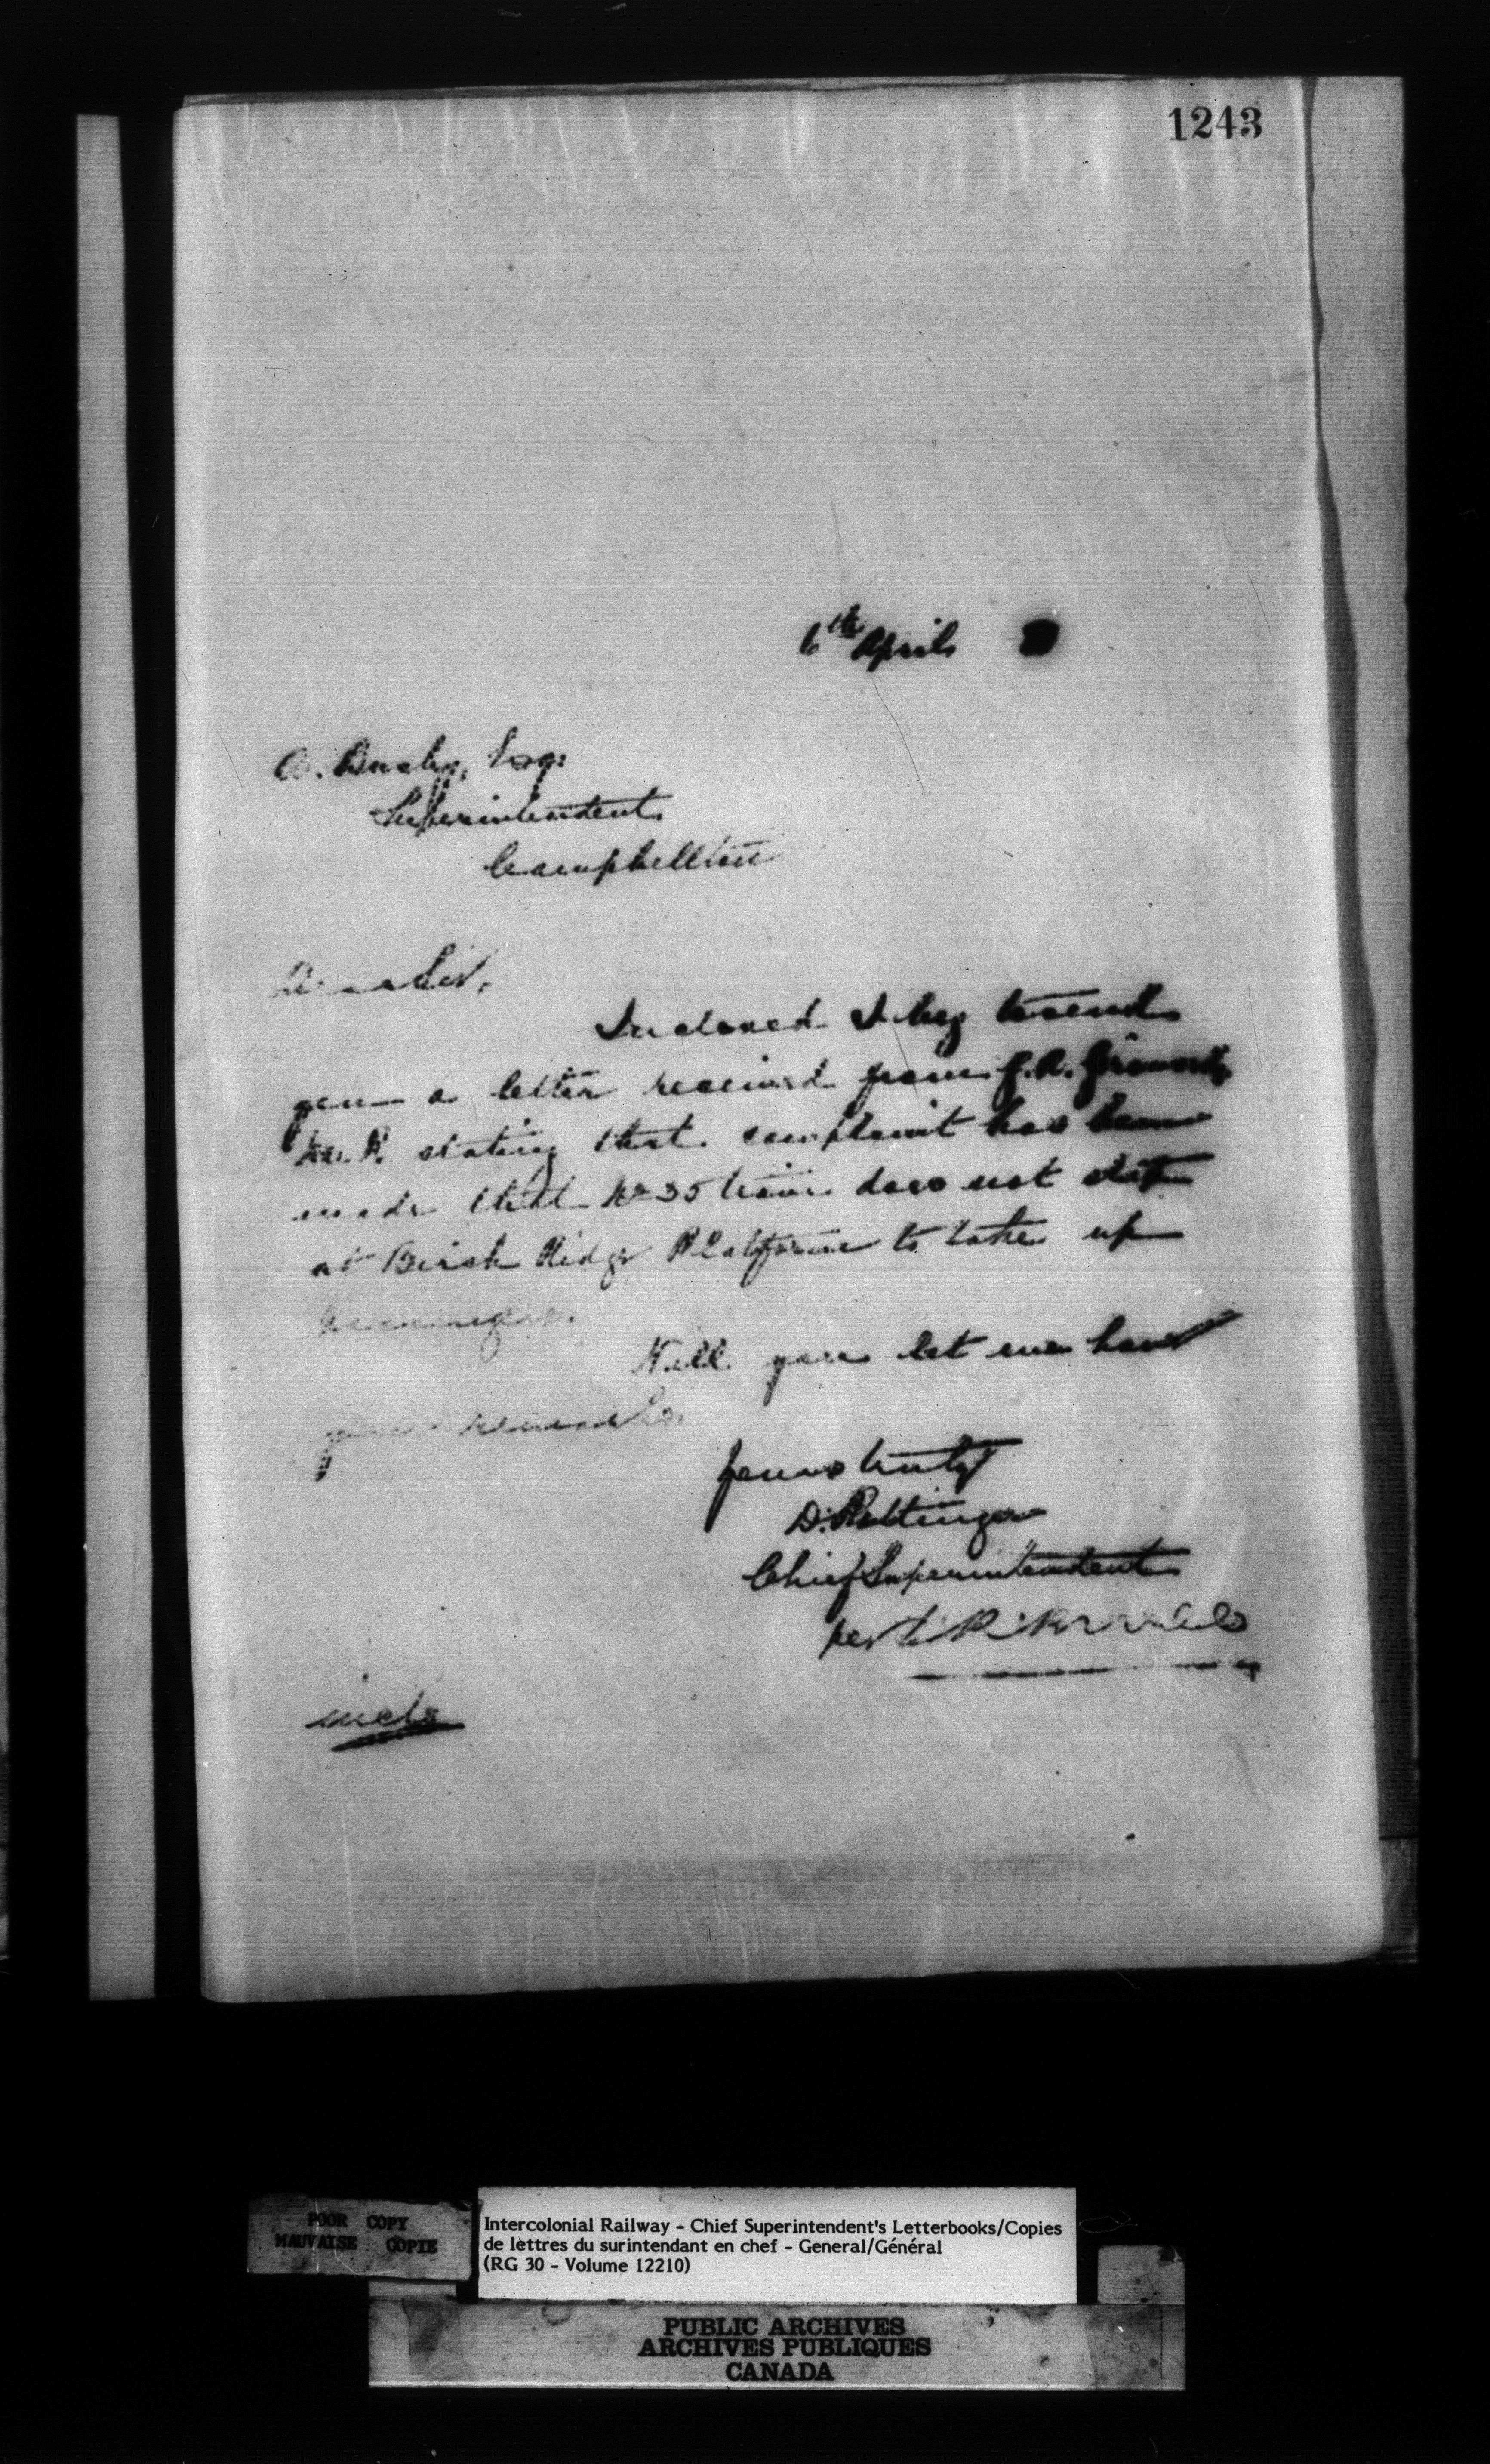 1243
6th April
A. Busby, Esq:
Superintendent
Campbellton
Dear Sir,
Inclosed I beg to send
you a letter received from G. A. Girouard,
M. P. stating that complaint has been
made that No 35 train does not stop
at Birch Ridge Platform to take up
passengers.
Will you let me have
your remarks.
Yours truly
D. Pottinger
Chief Superintendent
per
incls
POOR COPY
MAUVAISE COPIE
Intercolonial Railway - Chief Superintendent's Letterbooks/Copies
de lettres du surintendant en chef - General/Général
(RG 30 - Volume 12210)
PUBLIC ARCHIVES
ARCHIVES PUBLIQUES
CANADA